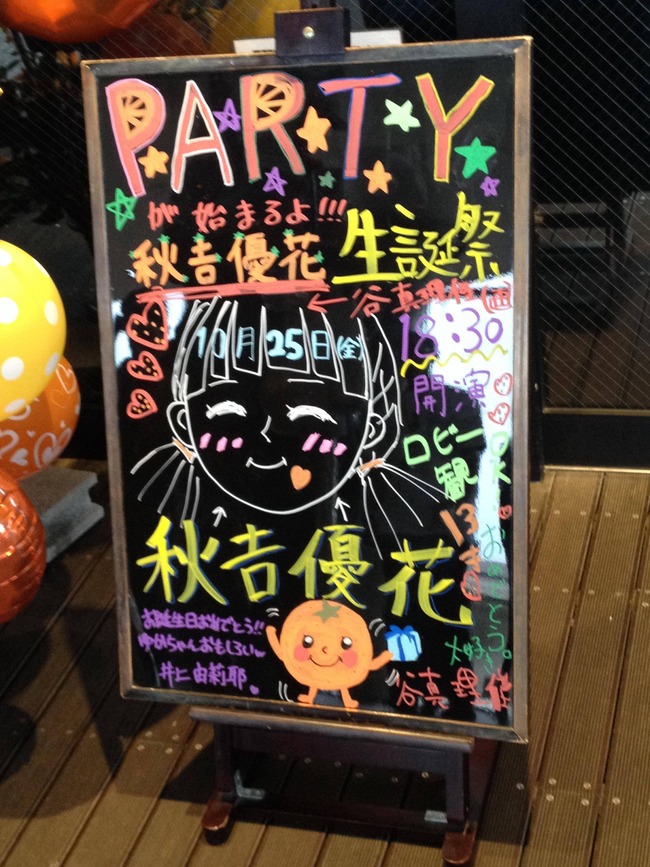 PARTY
が始まるよ!!!
秋吉優花 生誕祭
←谷真理佳画
10月25日(金)
18:30
開演
ロビー
観
OK
秋吉優花
13才
おめでとう。
大好き
お誕生日おめでとう!!
ゆかちゃんおもしろい
井上由莉耶
谷真理佳